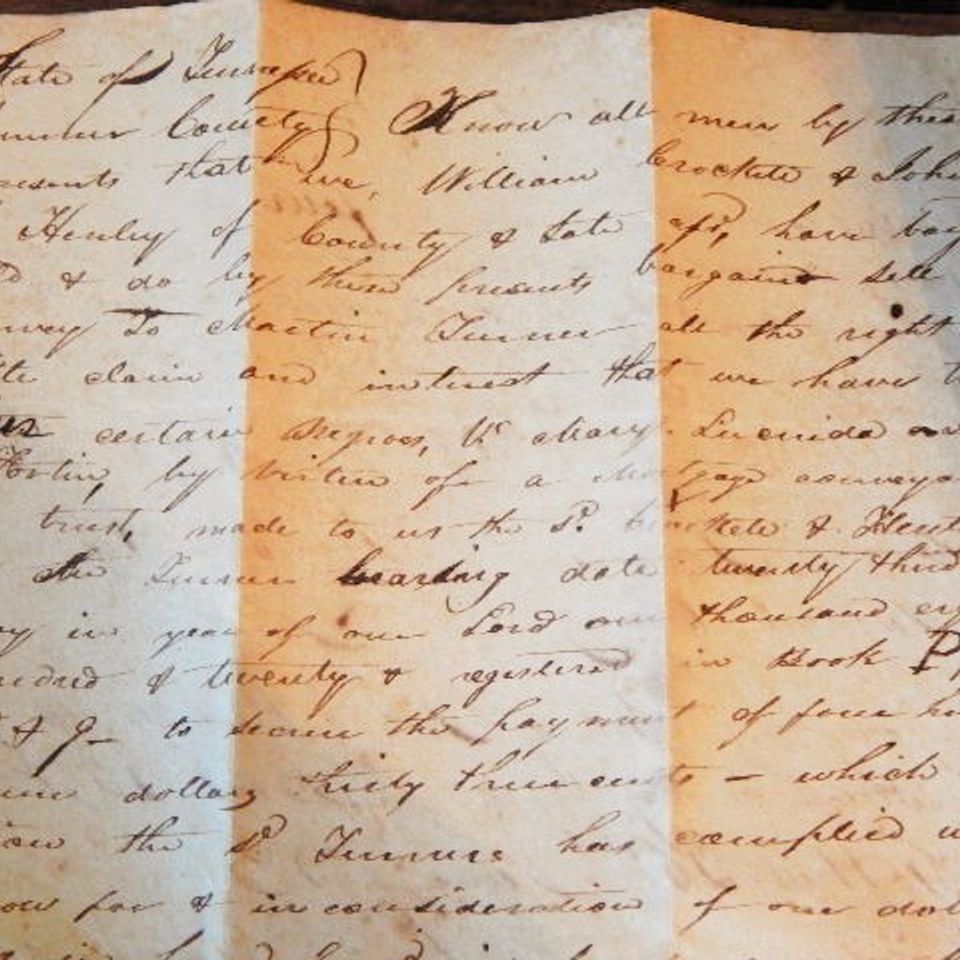 State of Tennessee
Sumner County Know all men by these
presents that we, William Crockete & John
Henley of County & State afsd, have barg
d & do by these presents bargain sell
nvey to Martin Turner all the right
tle claim and interest that we have to
certain Negroes, Vz Mary Lucinda an
by virtue of a Mortgage conveya
trust, made to us the sd. Crockete & Henl
Turner bearing date twenty third
ay in year of our Lord one thousand eig
undred & twenty & registered in Book P,
& to secure the payment of four hu
dollars thirty three cents - which
ion the sd Turner has complied w
ow for & in consideration of one dol